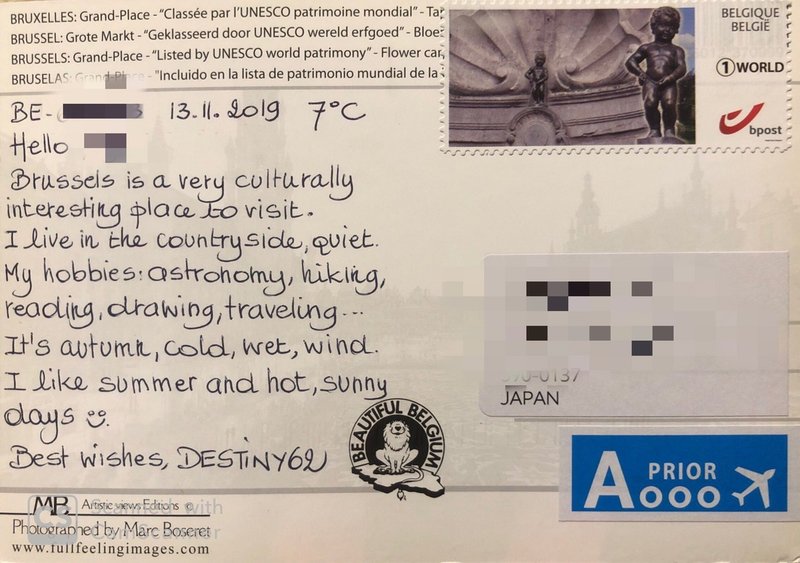 BRUXELLES: Grand-Place - “Classée par l’UNESCO patrimoine mondial” - Ta
BRUSSEL: Grote Markt - “Geklasseerd door UNESCO wereld erfgoed” - Bloe
BRUSSELS: Grand-Place - “Listed by UNESCO world patrimony” - Flower car
BRUSELAS: Grand-Place - “Incluido en la lista de patrimonio mundial de la
BELGIQUE
BELGIË
1 WORLD
bpost
BE- 13.11.2019 7°C
Hello
Brussels is a very culturally
interesting place to visit.
I live in the countryside, quiet.
My hobbies: astronomy, hiking,
reading, drawing, traveling...
It's autumn, cold, wet, wind.
I like summer and hot, sunny
days
Best wishes, DESTINY62
BEAUTIFUL BELGIUM
-0137
JAPAN
A PRIOR
MB Artistic views Editions ©
Photographed by Marc Boseret
www.fullfeelingimages.com
CS Scanned with
CamScanner